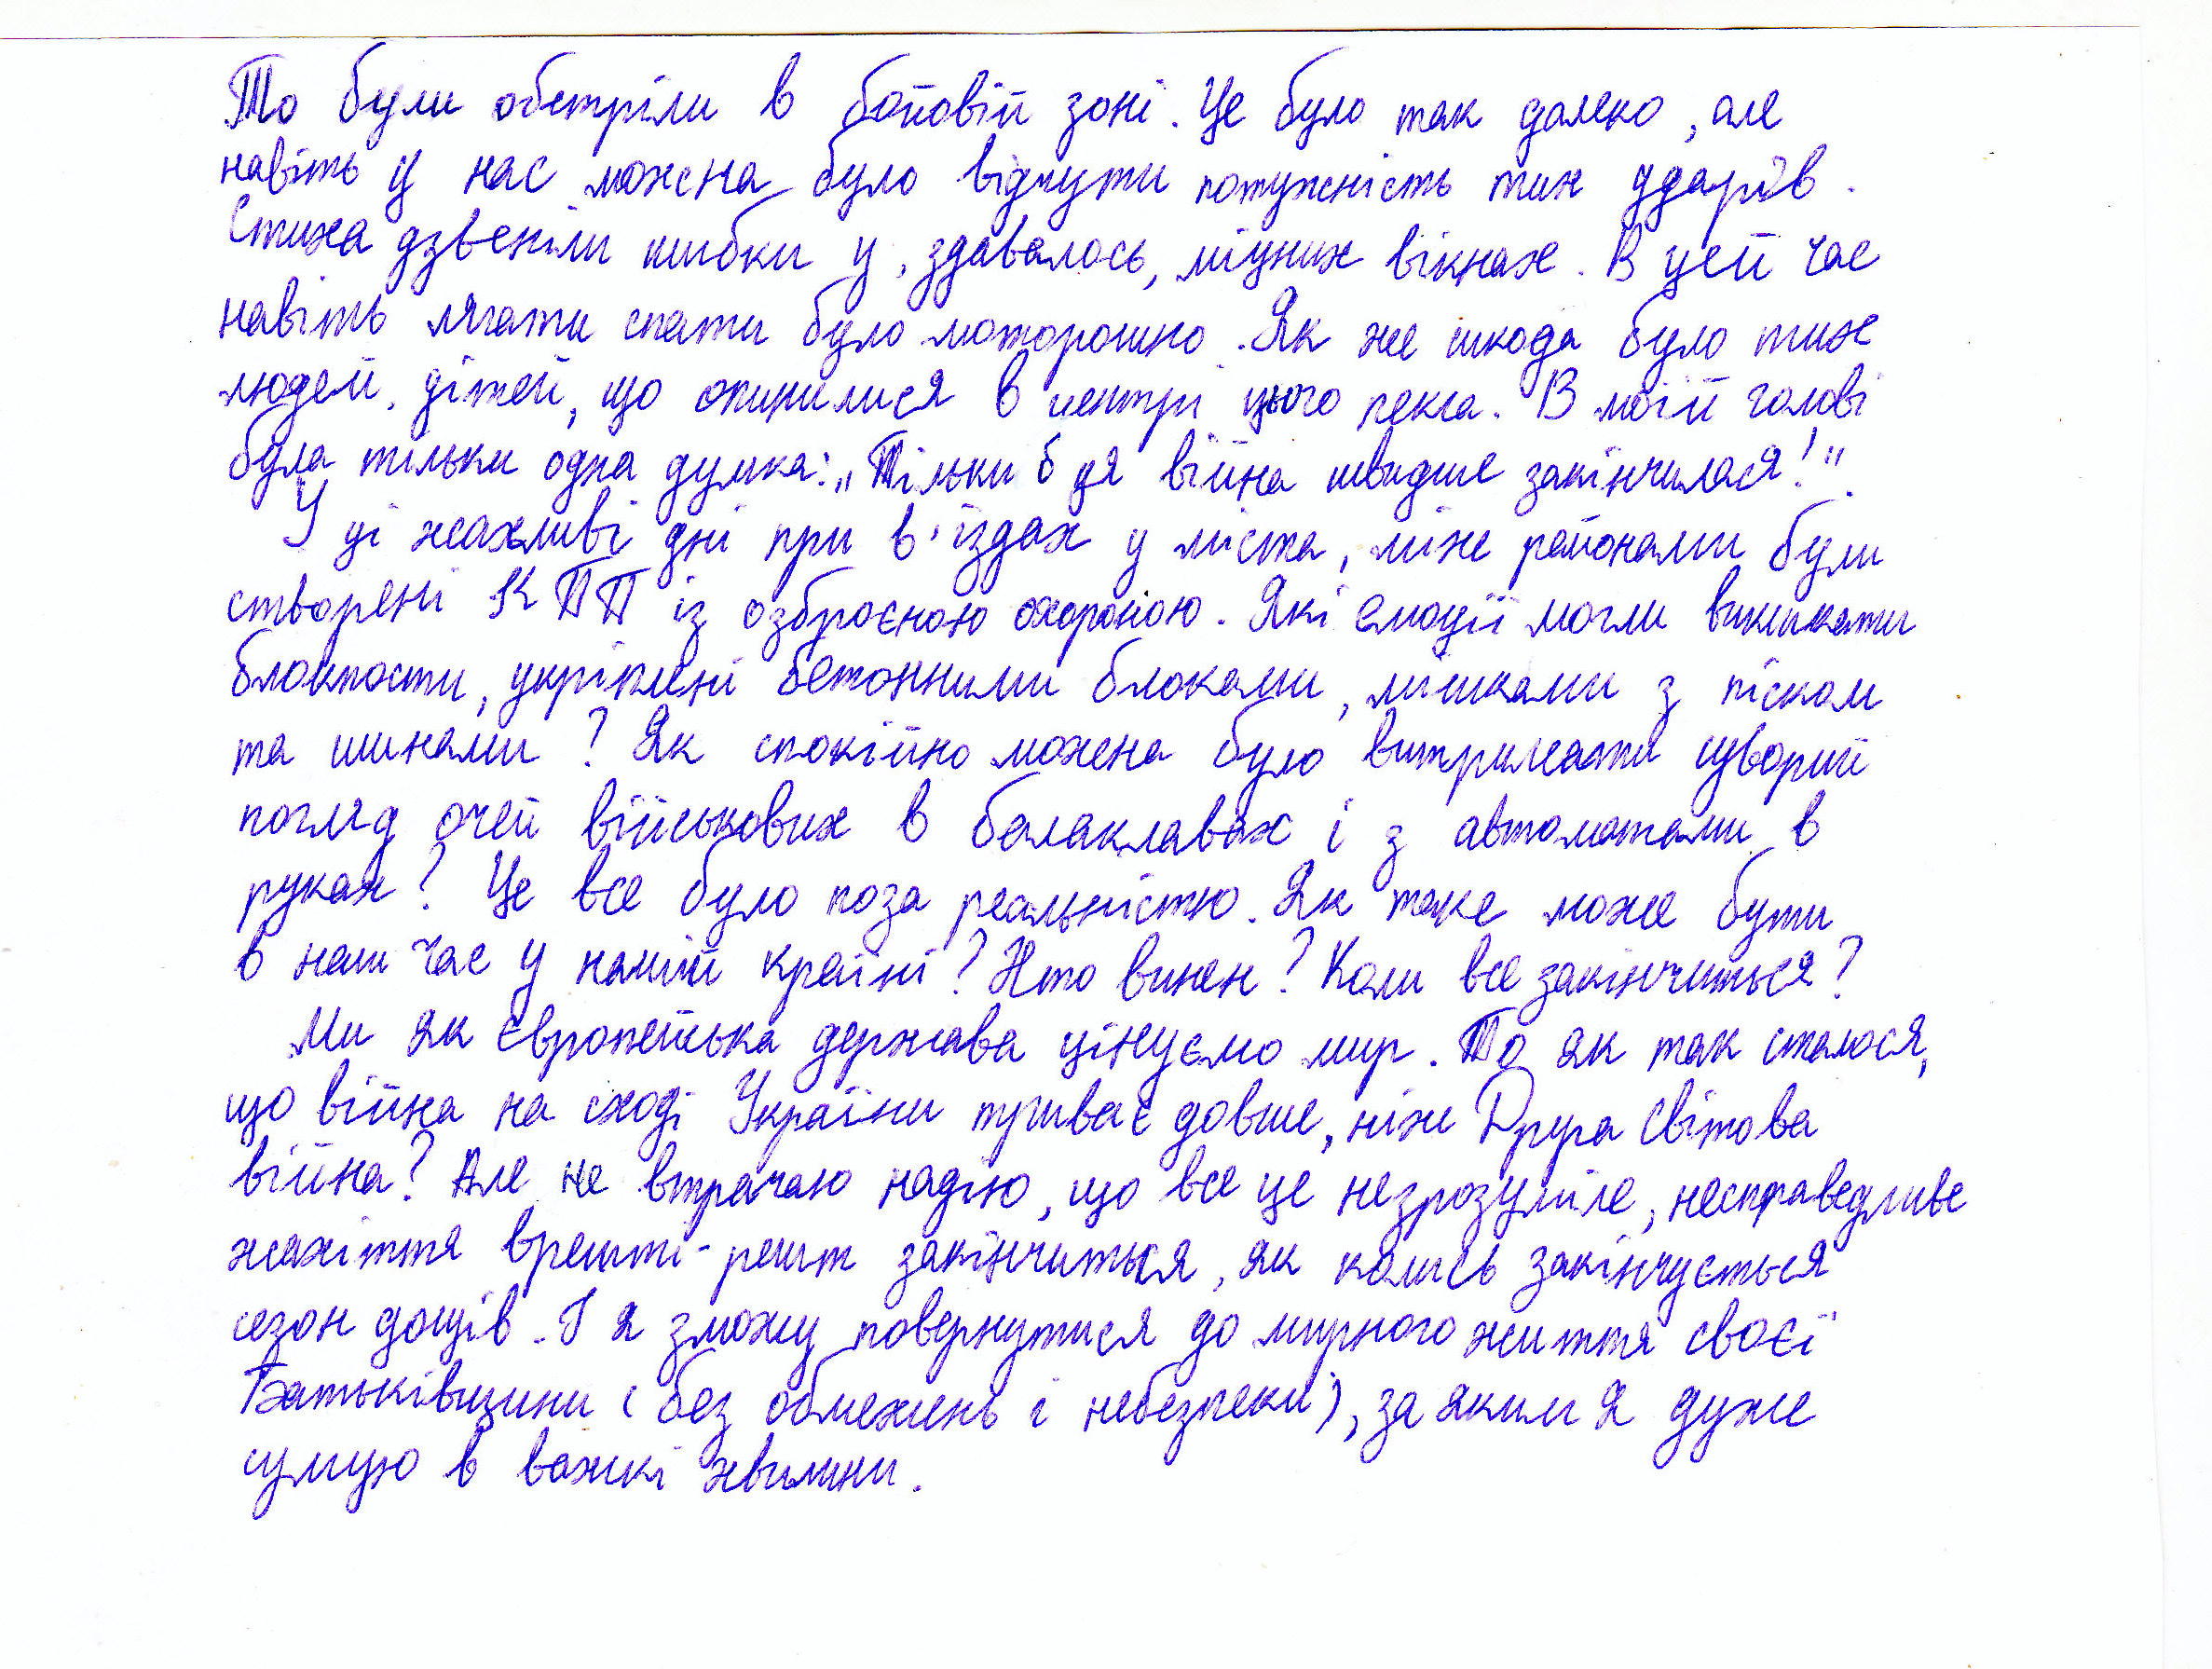 То були обстріли в бойовій зоні. Це було так далеко, але
навіть у нас можна було відчути потужність тих ударів.
Стиха дзвеніли шибки у, здавалось, міцних вікнах. В цей час
навіть лягати спати було моторошно. Як же шкода було тих
людей, дітей, що опинилися в центрі цього пекла. В моїй голові
була тільки одна думка: „Тільки б ця війна швидше закінчилася!".
У ці жахливі дні при в'їздах у міста, між районами були
створені КПП із озброєною охороною. Які емоції могли викликати
блокпости, укріплені бетонними блоками, мішками з піском
та шинами? Як спокійно можна було витримати суворий
погляд очей військових в балаклавах і з автоматами в
руках? Це все було поза реальністю. Як таке може бути
в наш час у нашій країні? Хто винен? Коли все закінчиться?
Ми як європейська держава цінуємо мир. То як так сталося,
що війна на сході України триває довше, ніж Друга світова
війна? Але не втрачаю надію, що все це незрозуміле, несправедливе
жахіття врешті-решт закінчиться, як колись закінчується
сезон дощів. І я зможу повернутися до мирного життя своєї
Батьківщини (без обмежень і небезпеки), за яким я дуже
сумую в важкі хвилини.